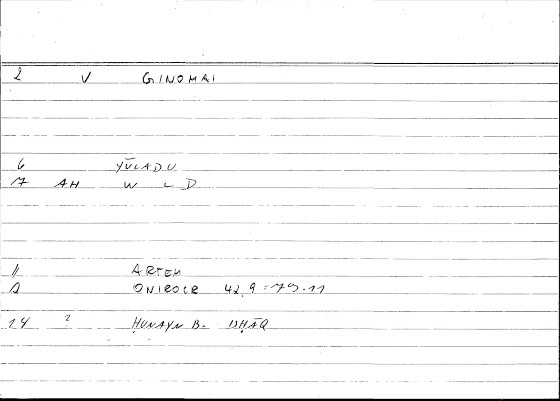 2 V GINOMAI
6 YŪLADU
7 AH W L D
11 ARTEM
ONIROCR 42,9 = 79.11
14 ? ḤUNAYN B. ISḤĀQ